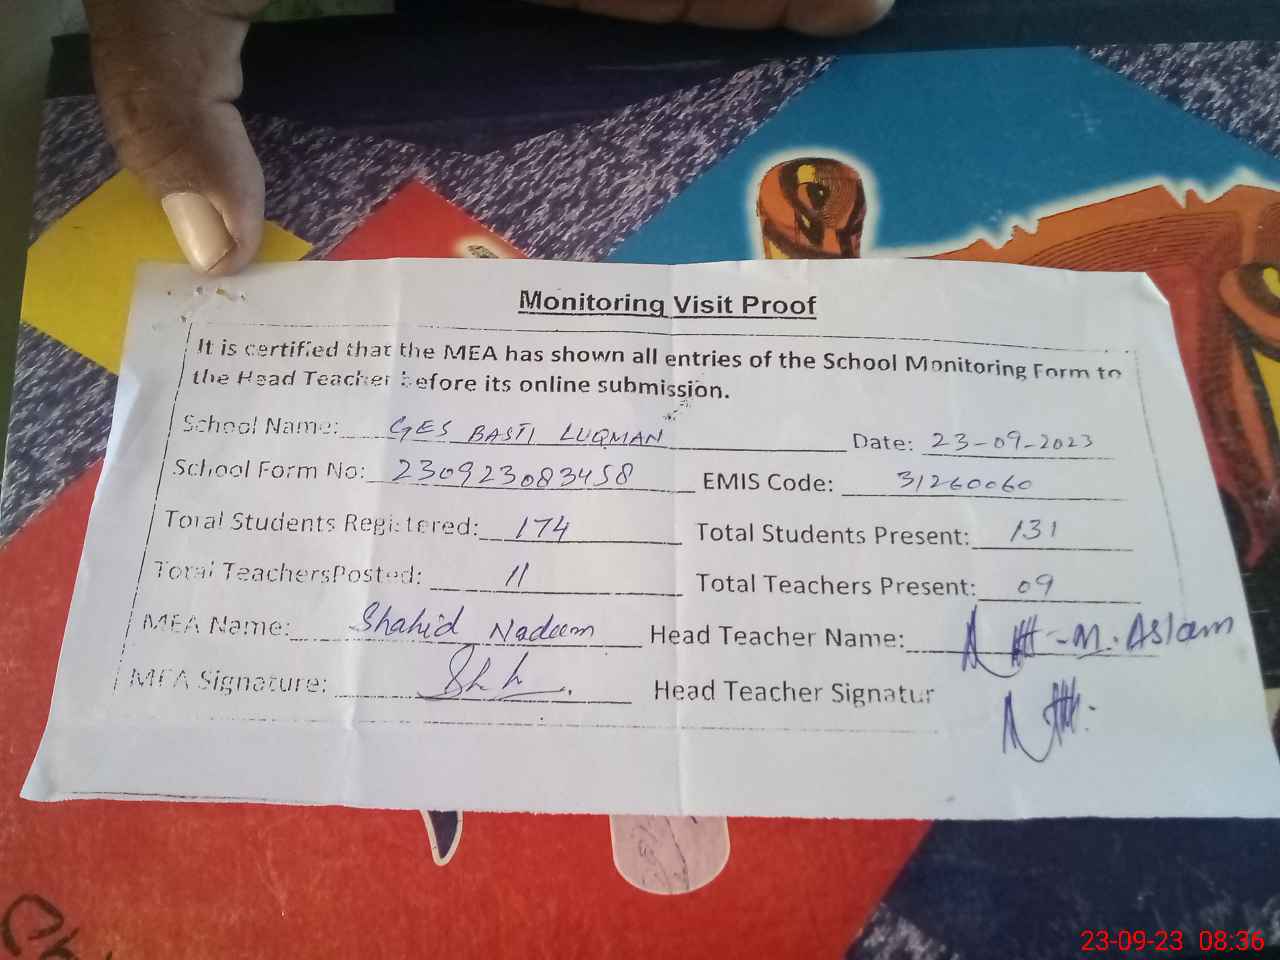 Monitoring Visit Proof
It is certified that the MEA has shown all entries of the School Monitoring Form to
the Head Teacher before its online submission.
School Name: GES BASTI LUQMAN Date: 23-09-2023
School Form No: 230923083458 EMIS Code: 31260060
Total Students Registered: 174 Total Students Present: 131
Total TeachersPosted: 11 Total Teachers Present: 09
MEA Name: Shahid Nadeem Head Teacher Name: M. Aslam
MEA Signature: Head Teacher Signatur
23-09-23 08:36